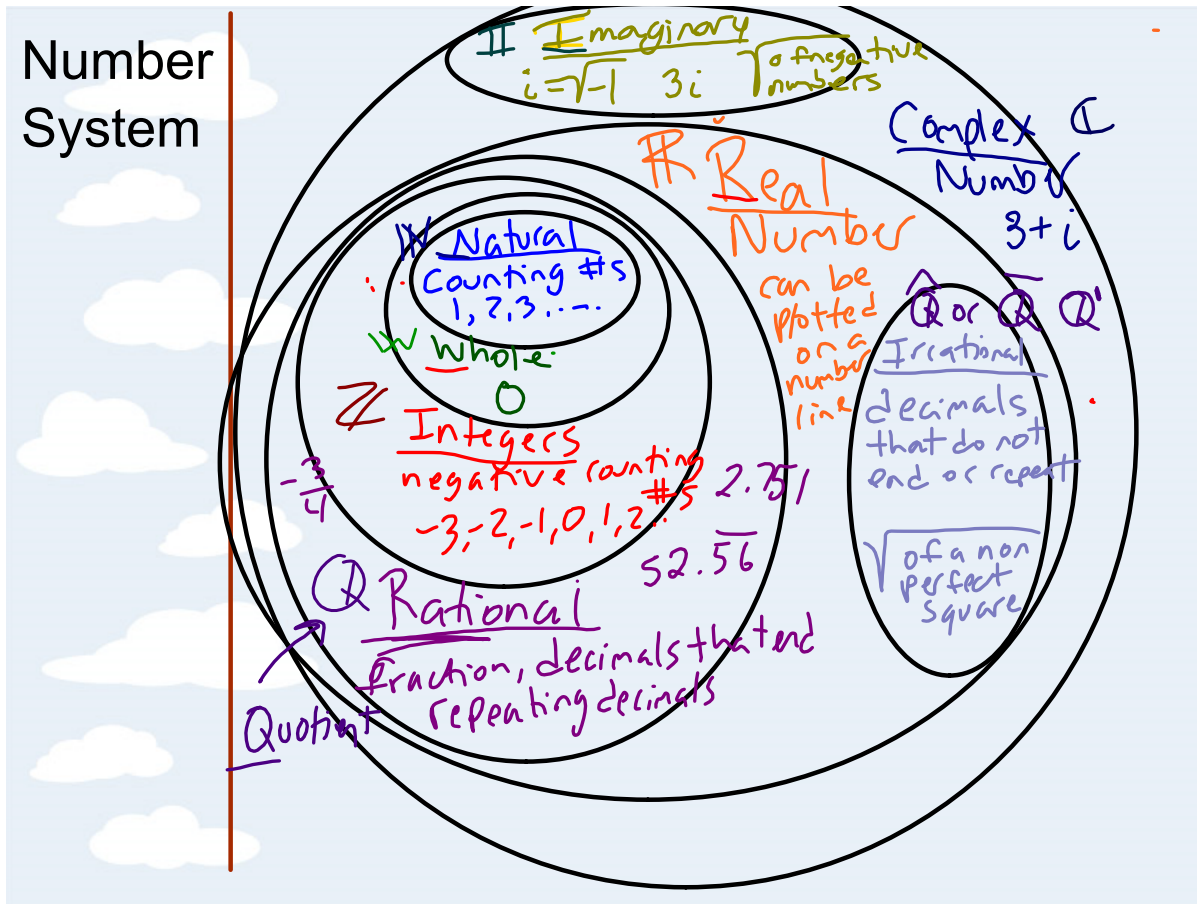 Number
System
𝕀 Imaginary
i = √-1 3i √of negative
numbers
Complex ℂ
Number
3 + i
ℝ Real
Number
can be
plotted
on a
number
line
ℕ Natural
Counting #s
1, 2, 3 ....
𝕎 Whole
0
ℤ Integers
negative counting
#s
-3, -2, -1, 0, 1, 2...
-3/4
2.751
52.5̅6̅
ℚ Rational
fraction, decimals that end
repeating decimals
Quotient
ℚ̂ or ℚ̅ ℚ'
Irrational
decimals
that do not
end or repeat
√of a non
perfect
square